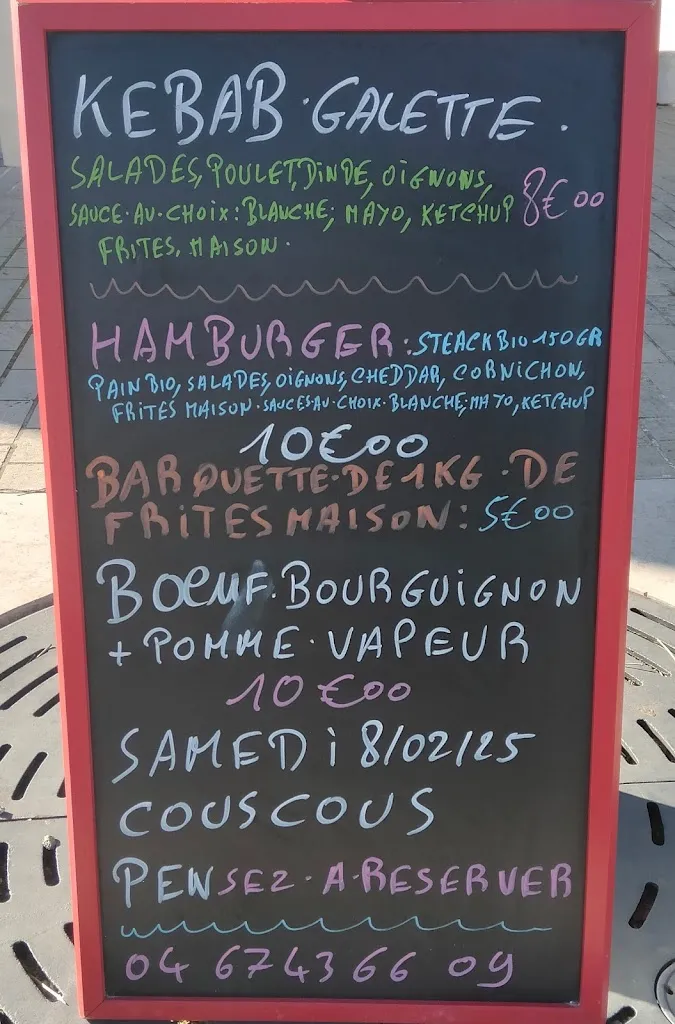 KEBAB·GALETTE.
SALADES, POULET, DINDE, OIGNONS,
SAUCE·AU·CHOIX: BLANCHE; MAYO, KETCHUP 8€00
FRITES, MAISON.
HAMBURGER: STEACK BIO 150GR
PAIN BIO, SALADES, OIGNONS, CHEDDAR, CORNICHON,
FRITES MAISON·SAUCES·AU·CHOIX·BLANCHE; MAYO, KETCHUP
10€00
BARQUETTE·DE 1KG·DE
FRITES MAISON: 5€00
BOEUF·BOURGUIGNON
+ POMME·VAPEUR
10€00
SAMEDI 8/02/25
COUSCOUS
PENSEZ·A·RESERVER
04 67 43 66 09